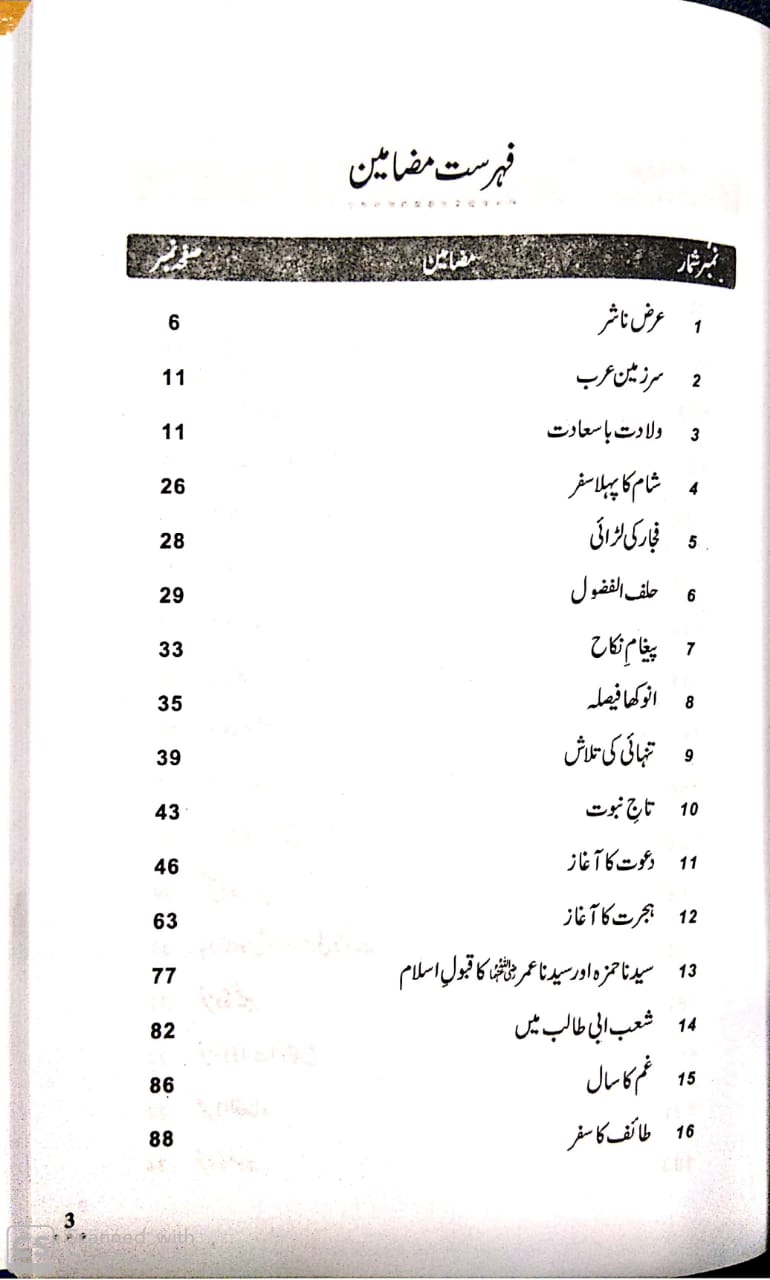 فہرست مضامین
نمبر شمار مضامین صفحہ نمبر
1 عرض ناشر 6
2 سرزمین عرب 11
3 ولادت باسعادت 11
4 شام کا پہلا سفر 26
5 فجار کی لڑائی 28
6 حلف الفضول 29
7 پیغامِ نکاح 33
8 انوکھا فیصلہ 35
9 تنہائی کی تلاش 39
10 تاجِ نبوت 43
11 دعوت کا آغاز 46
12 ہجرت کا آغاز 63
13 سیدنا حمزہ اور سیدنا عمر رضی اللہ عنہما کا قبولِ اسلام 77
14 شعب ابی طالب میں 82
15 غم کا سال 86
16 طائف کا سفر 88
3
CS Scanned with